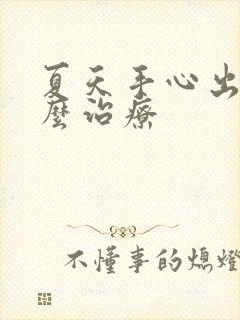 夏天手心出
麼治療
不懂事的熄燈